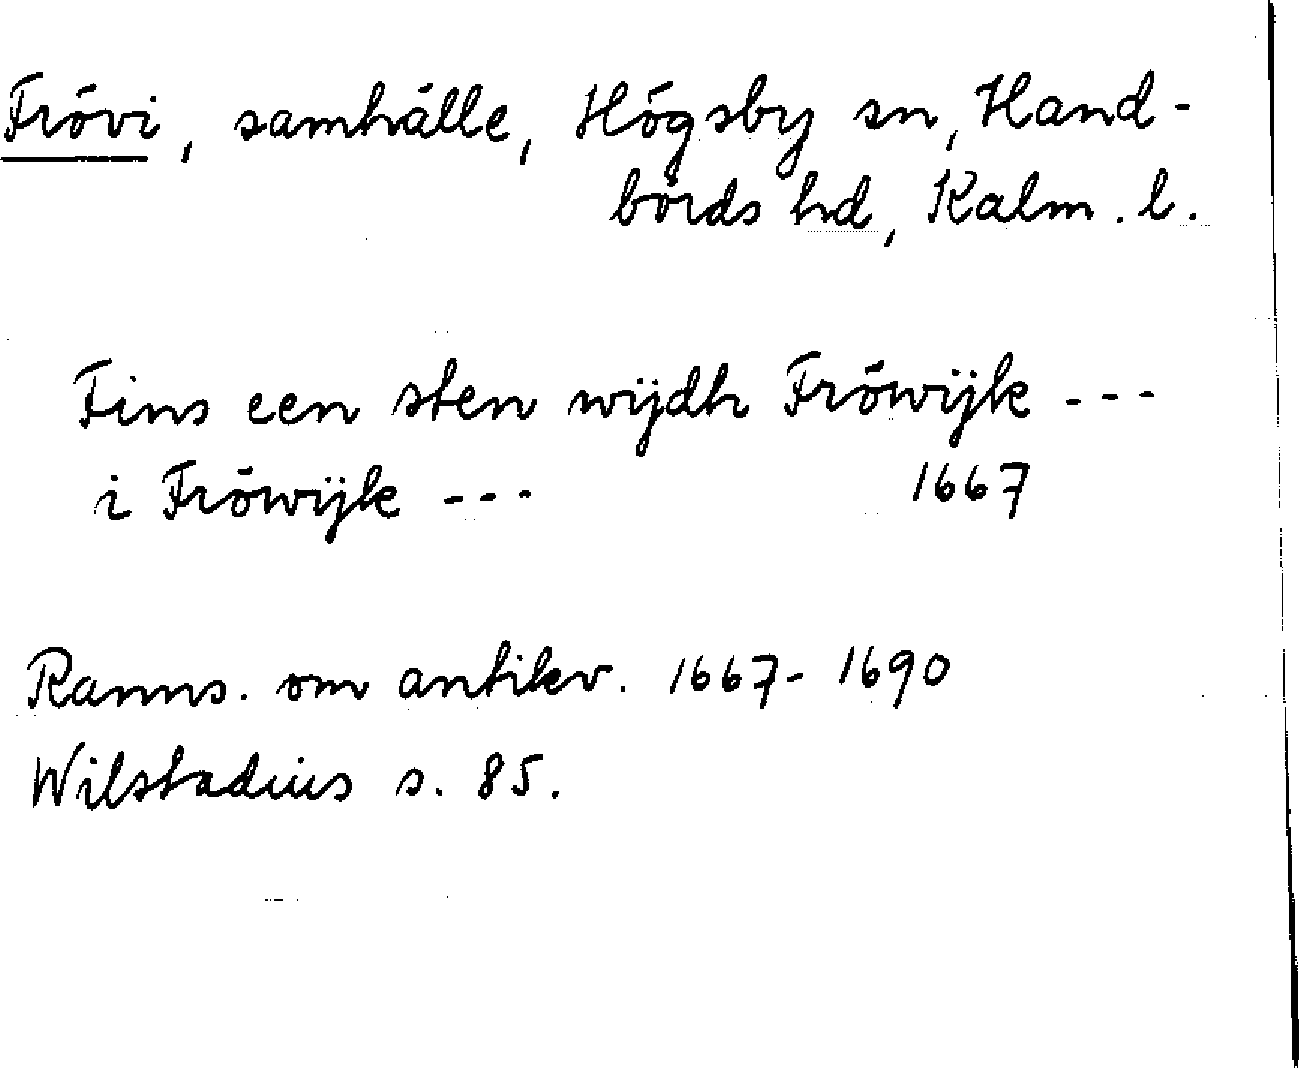 Frövi, samhälle, Högsby sn, Hand-
börds hd, Kalm. l.
Fins een sten wijdh Fröwijk ---
i Fröwijk --- 1667
Ranns. om antikv. 1667-1690
Wilstadius s. 85.